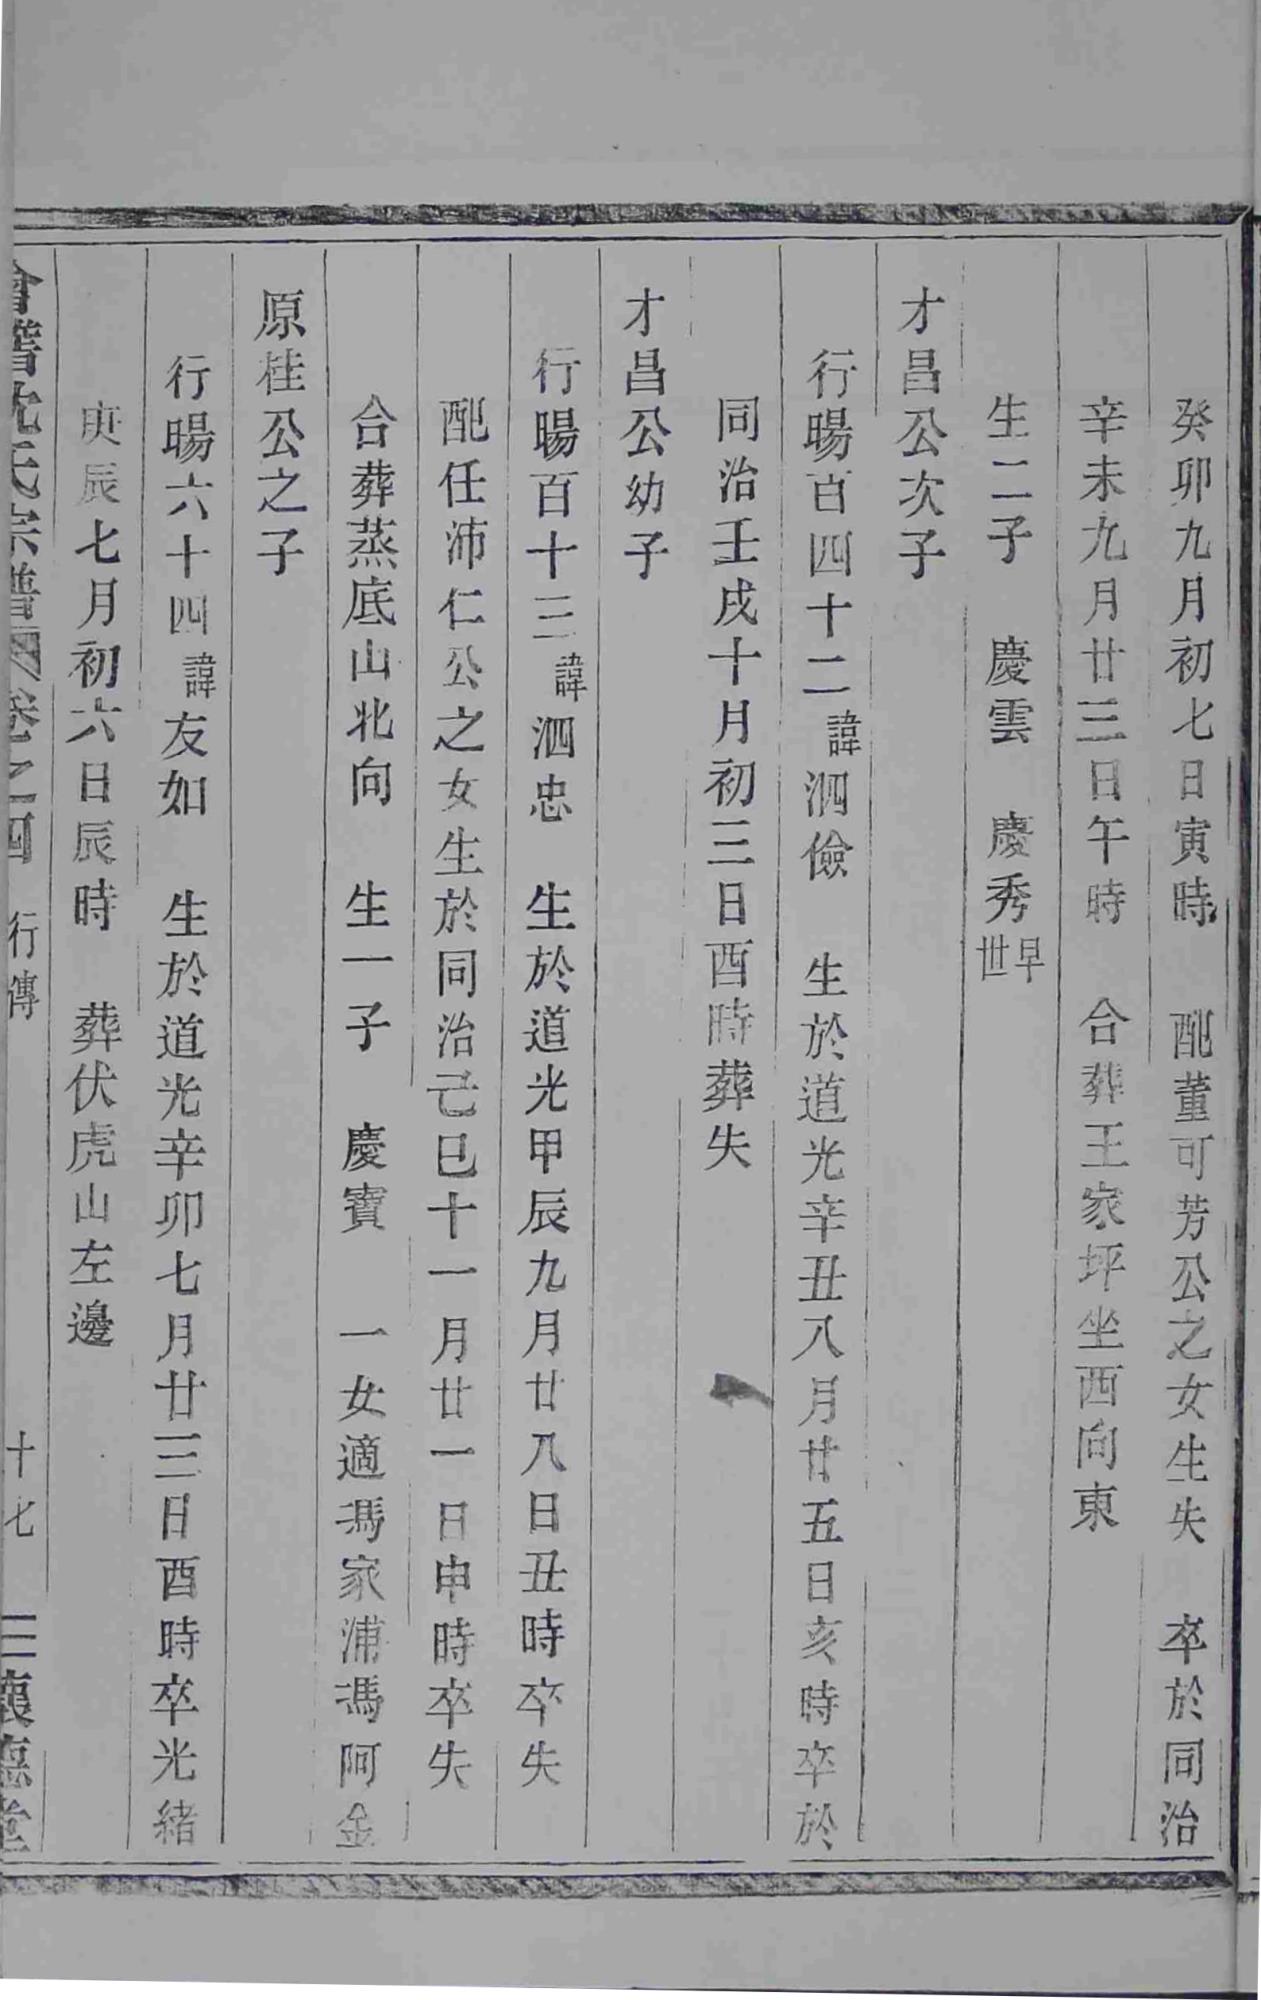 癸卯九月初七日寅時　配董可芳公之女生失　卒於同治
辛未九月廿三日午時　合葬王家坪坐西向東
生二子　慶雲　慶秀早世
才昌公次子
行暘百四十二諱泗儉　生於道光辛丑八月廿五日亥時卒於
同治壬戌十月初三日酉時葬失
才昌公幼子
行暘百十三諱泗忠　生於道光甲辰九月廿八日丑時卒失
配任沛仁公之女生於同治己巳十一月廿一日申時卒失
合葬蒸底山北向　生一子　慶寶　一女適馮家浦馮阿金
原桂公之子
行暘六十四諱友如　生於道光辛卯七月廿三日酉時卒光緒
庚辰七月初六日辰時　葬伏虎山左邊
會稽沈氏宗譜　卷之四　行傳　十七　三懷德堂